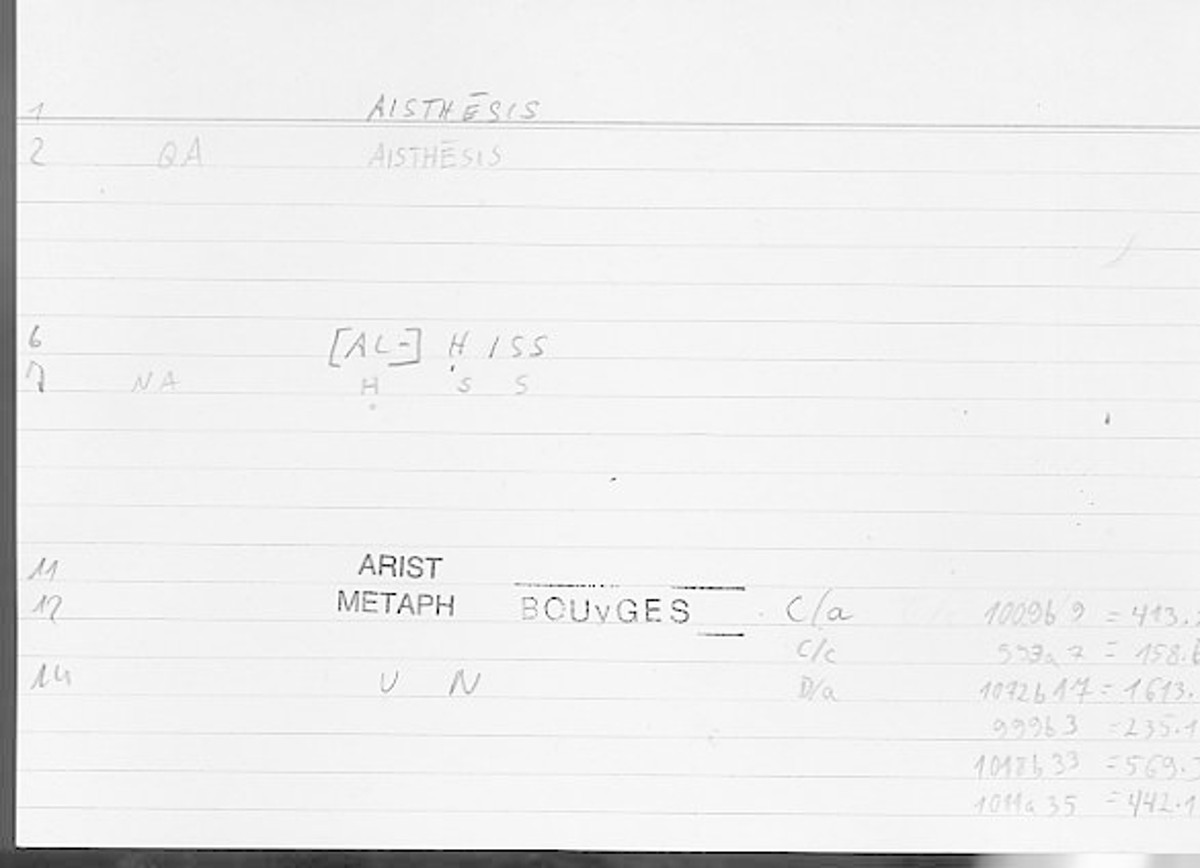 1 AISTHĒSIS
2 QA AISTHĒSIS
6 [AL-] Ḥ ISS
7 NA Ḥ S S
11 ARIST
12 METAPH BOUvGES C/a 1009b 9 = 413.
C/c 993a 7 = 158.6
14 U N D/a 1072b 17 = 1613.
999b 3 = 235.1
1018b 33 = 569.
1011a 35 = 442.1